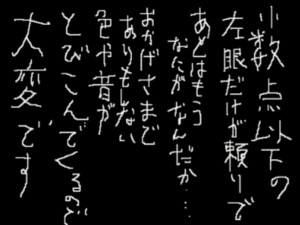 小数点以下の
左眼だけが頼りで
あとはもう
なにがなんだか…
おかげさまで
ありもしない
色や音が
とびこんでくるので
大変です